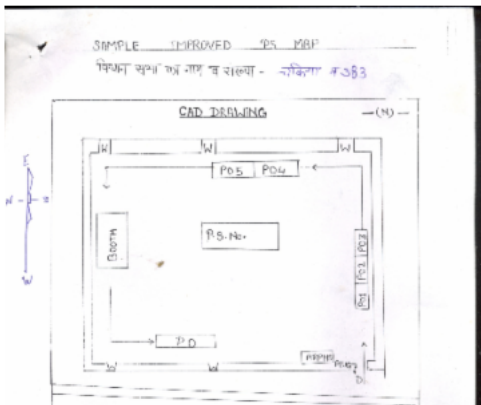 SAMPLE IMPROVED PS MAP
विधान सभा का नाम व संख्या - चकिया व 383
CAD DRAWING
(N)
W W W
PO5 PO4
BOOTH
P.S. No.
PO1 PO2 PO3
P.O
D